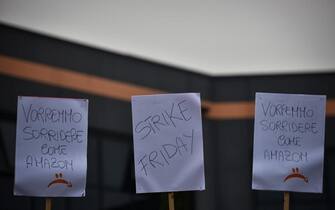 VORREMMO
SORRIDERE
COME
AMAZON
STRIKE
FRIDAY
VORREMMO
SORRIDERE
COME
AMAZON